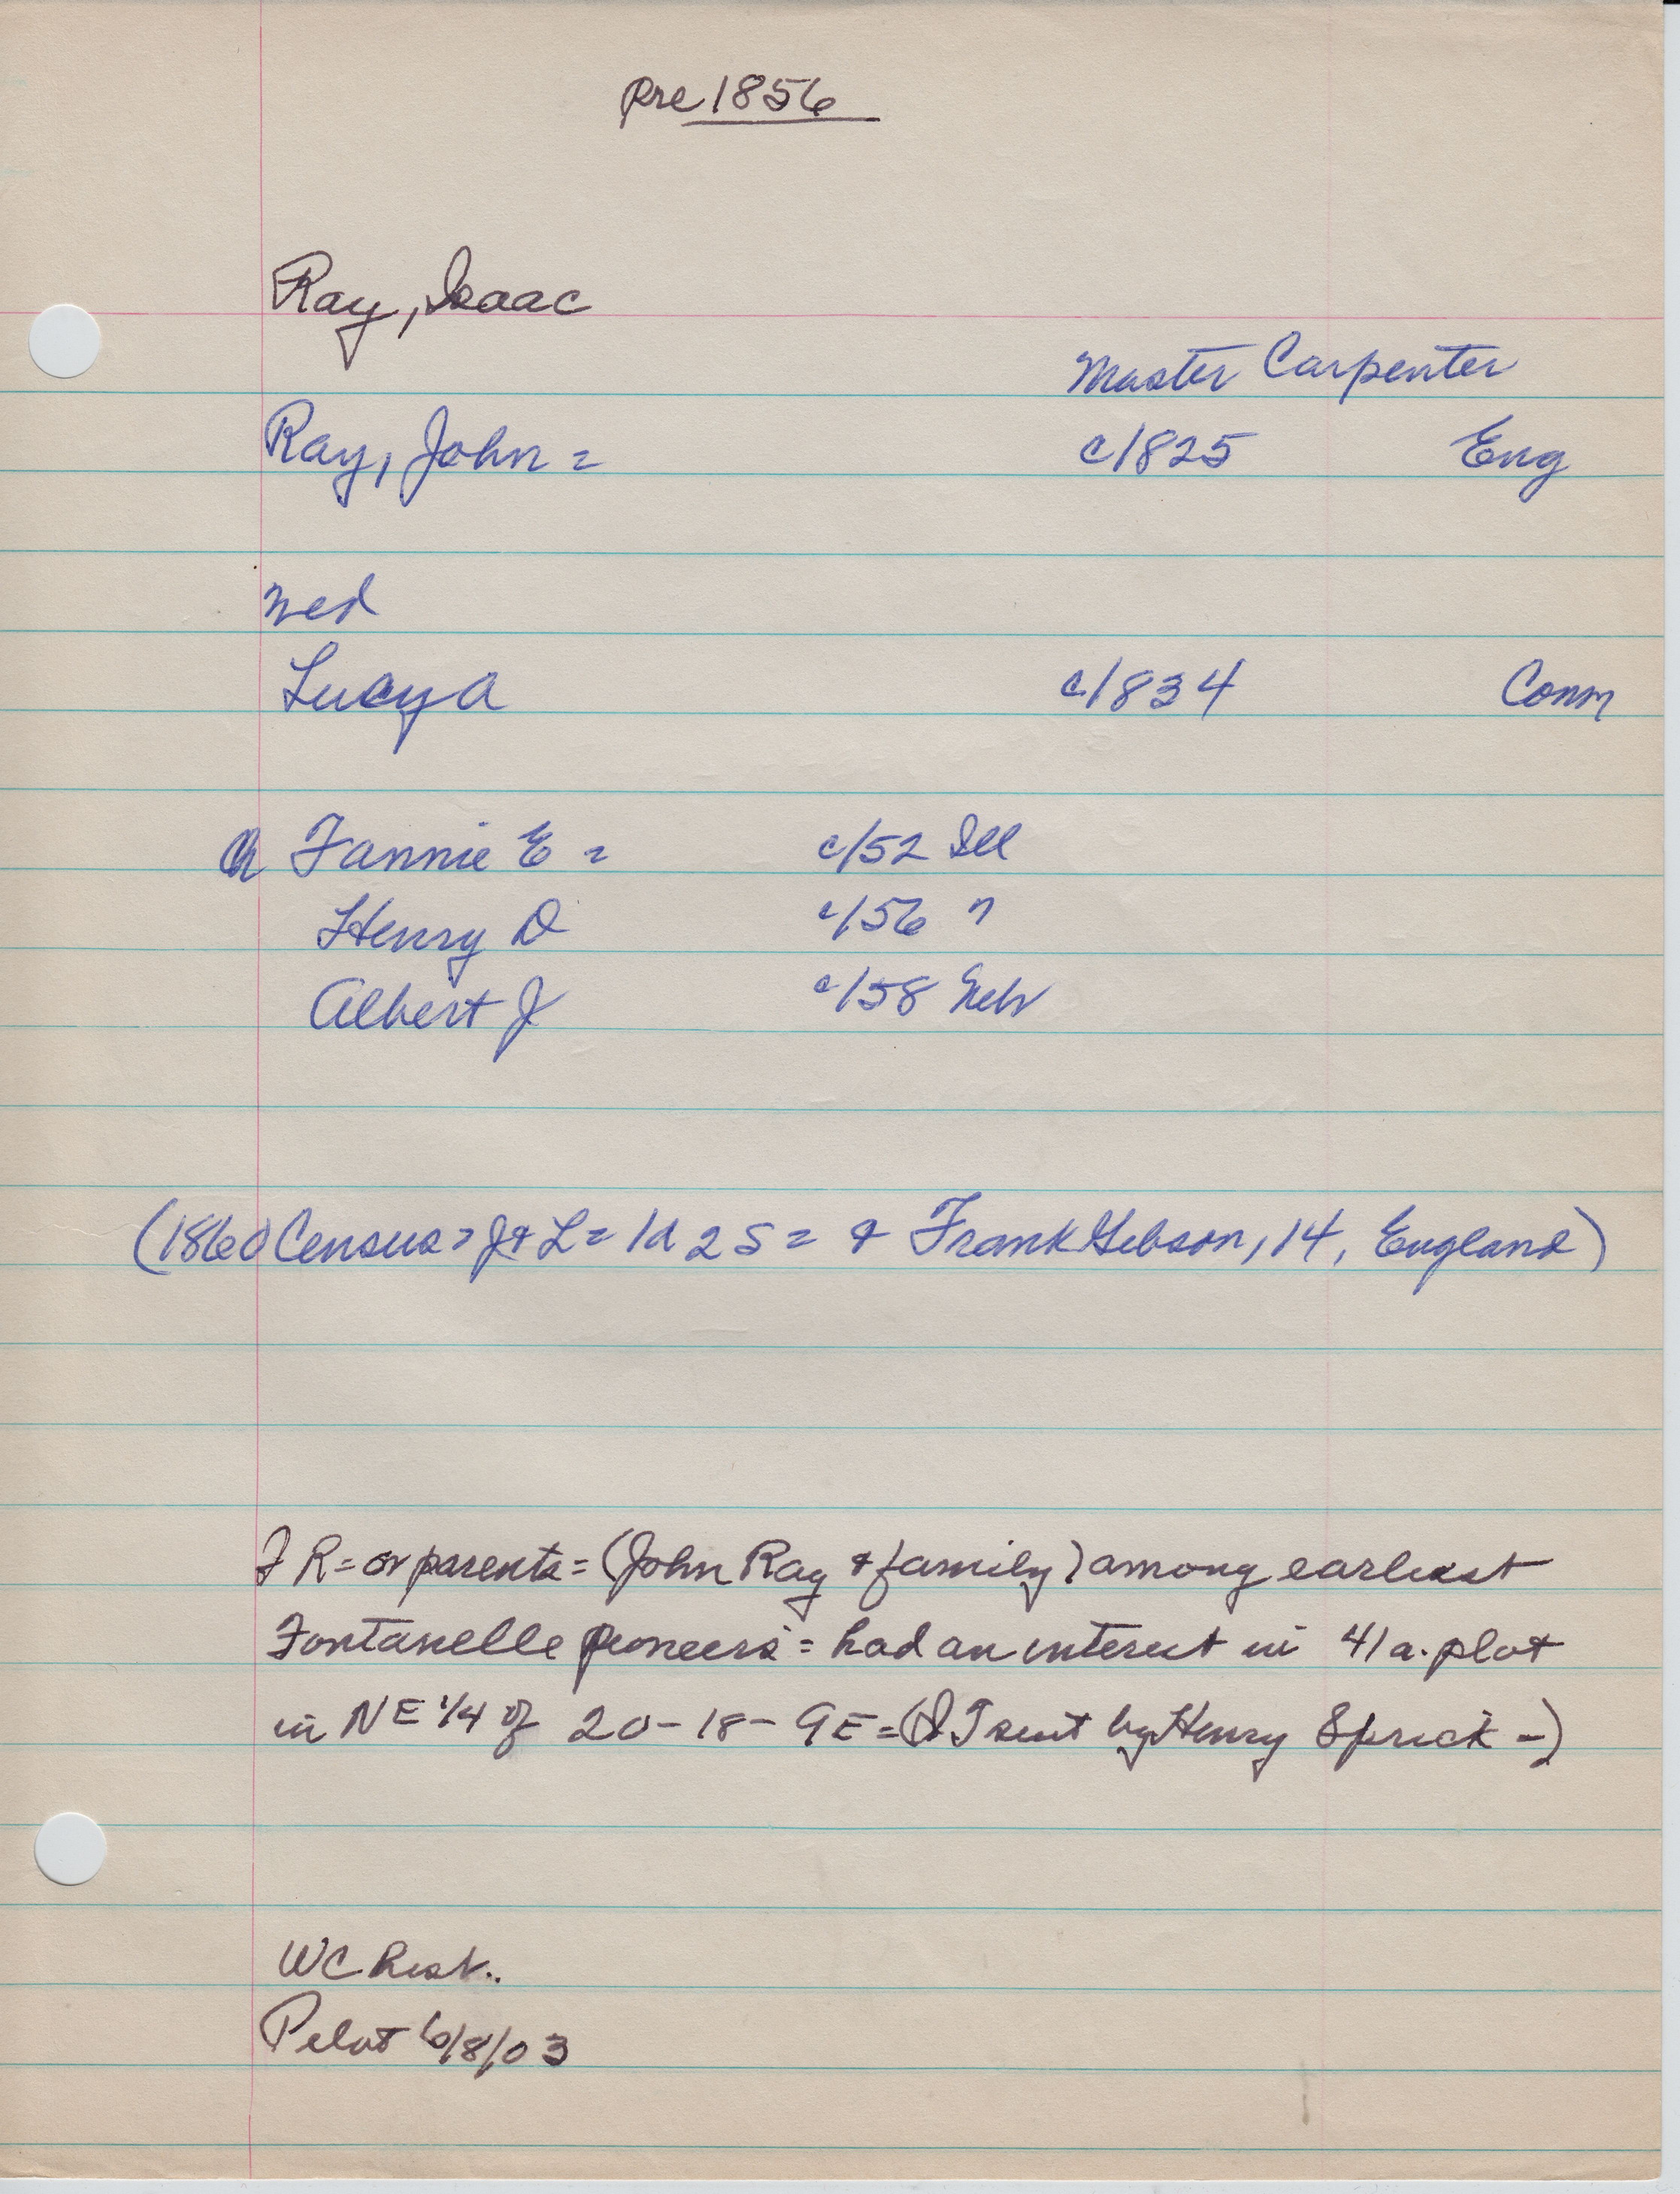 pre 1856
Ray, Isaac
Master Carpenter
Ray, John = c/1825 Eng
med
Lucy A c/1834 Conn
Ch Fannie E = c/52 Ill
Henry D c/56 "
Albert J c/58 Neb
(1860 Census = J & L = 1d 2 S = & Frank Gibson, 14, England)
I R = or parents = (John Ray & family) among earliest
Fontanelle pioneers = had an interest in 41 a. plot
in NE 1/4 of 20-18-9E = ( sent by Henry Sprick -)
WC
Pilot 6/8/03